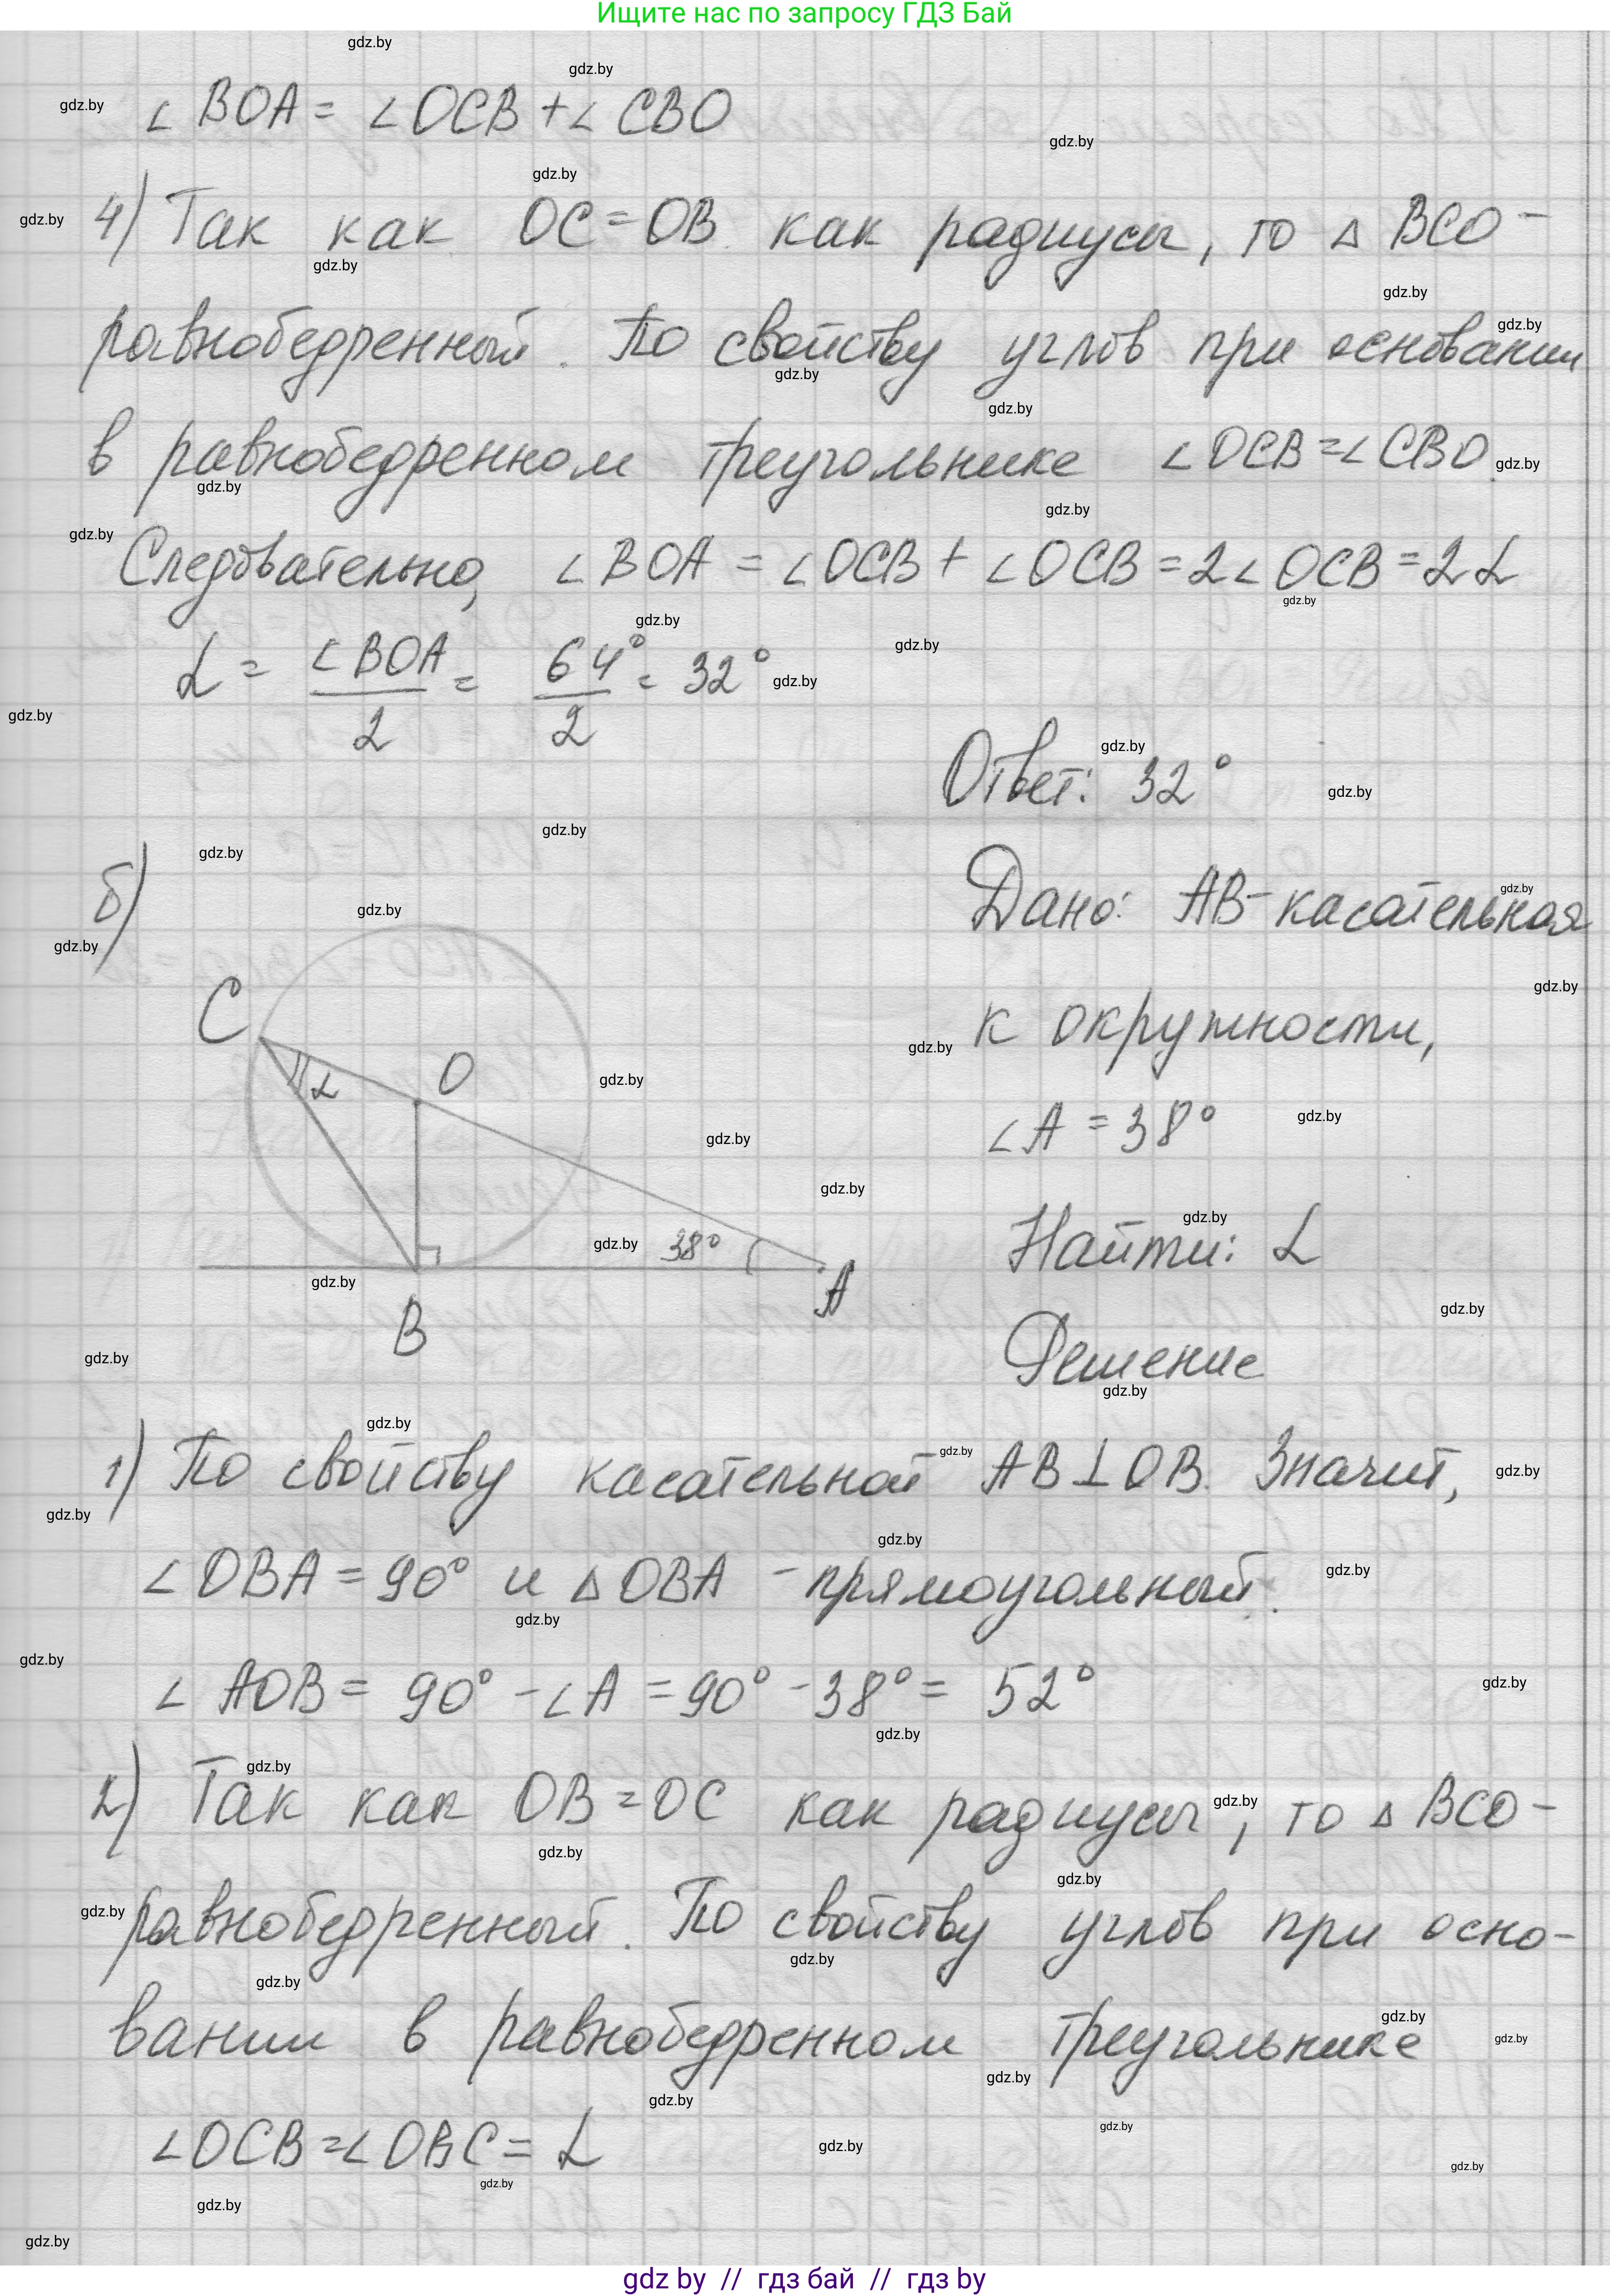 Ищите нас по запросу ГДЗ Бай
∠ BOA = ∠OCB + ∠ CBO
4) Так как OC = OB как радиусы, то △ BCO –
равнобедренный. По свойству углов при основании
в равнобедренном треугольнике ∠OCB = ∠CBO.
Следовательно, ∠BOA = ∠OCB + ∠OCB = 2∠OCB = 2α
α = ∠BOA/2 = 64°/2 = 32°
Ответ: 32°
б)
C
O
α
38°
A
B
Дано: AB – касательная
к окружности,
∠A = 38°
Найти: α
Решение
1) По свойству касательной AB⊥OB. Значит,
∠OBA = 90° и △OBA – прямоугольный.
∠ AOB = 90° – ∠A = 90° – 38° = 52°
2) Так как OB = OC как радиусы, то △ BCO –
равнобедренный. По свойству углов при осно-
вании в равнобедренном треугольнике
∠OCB = ∠OBC = α
gdz by // гдз бай // гдз by